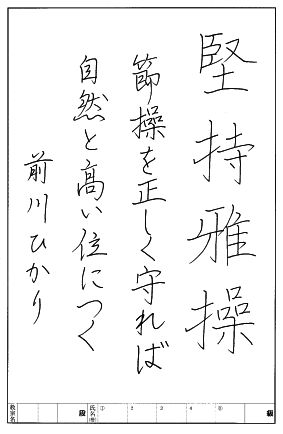 堅持雅操
節操を正しく守れば
自然と高い位につく
前川ひかり
教室名
段
氏名(雅号)
①
2
3
4
⑤
級